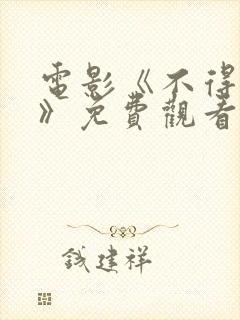 電影《不得
》免費觀看
錢建祥